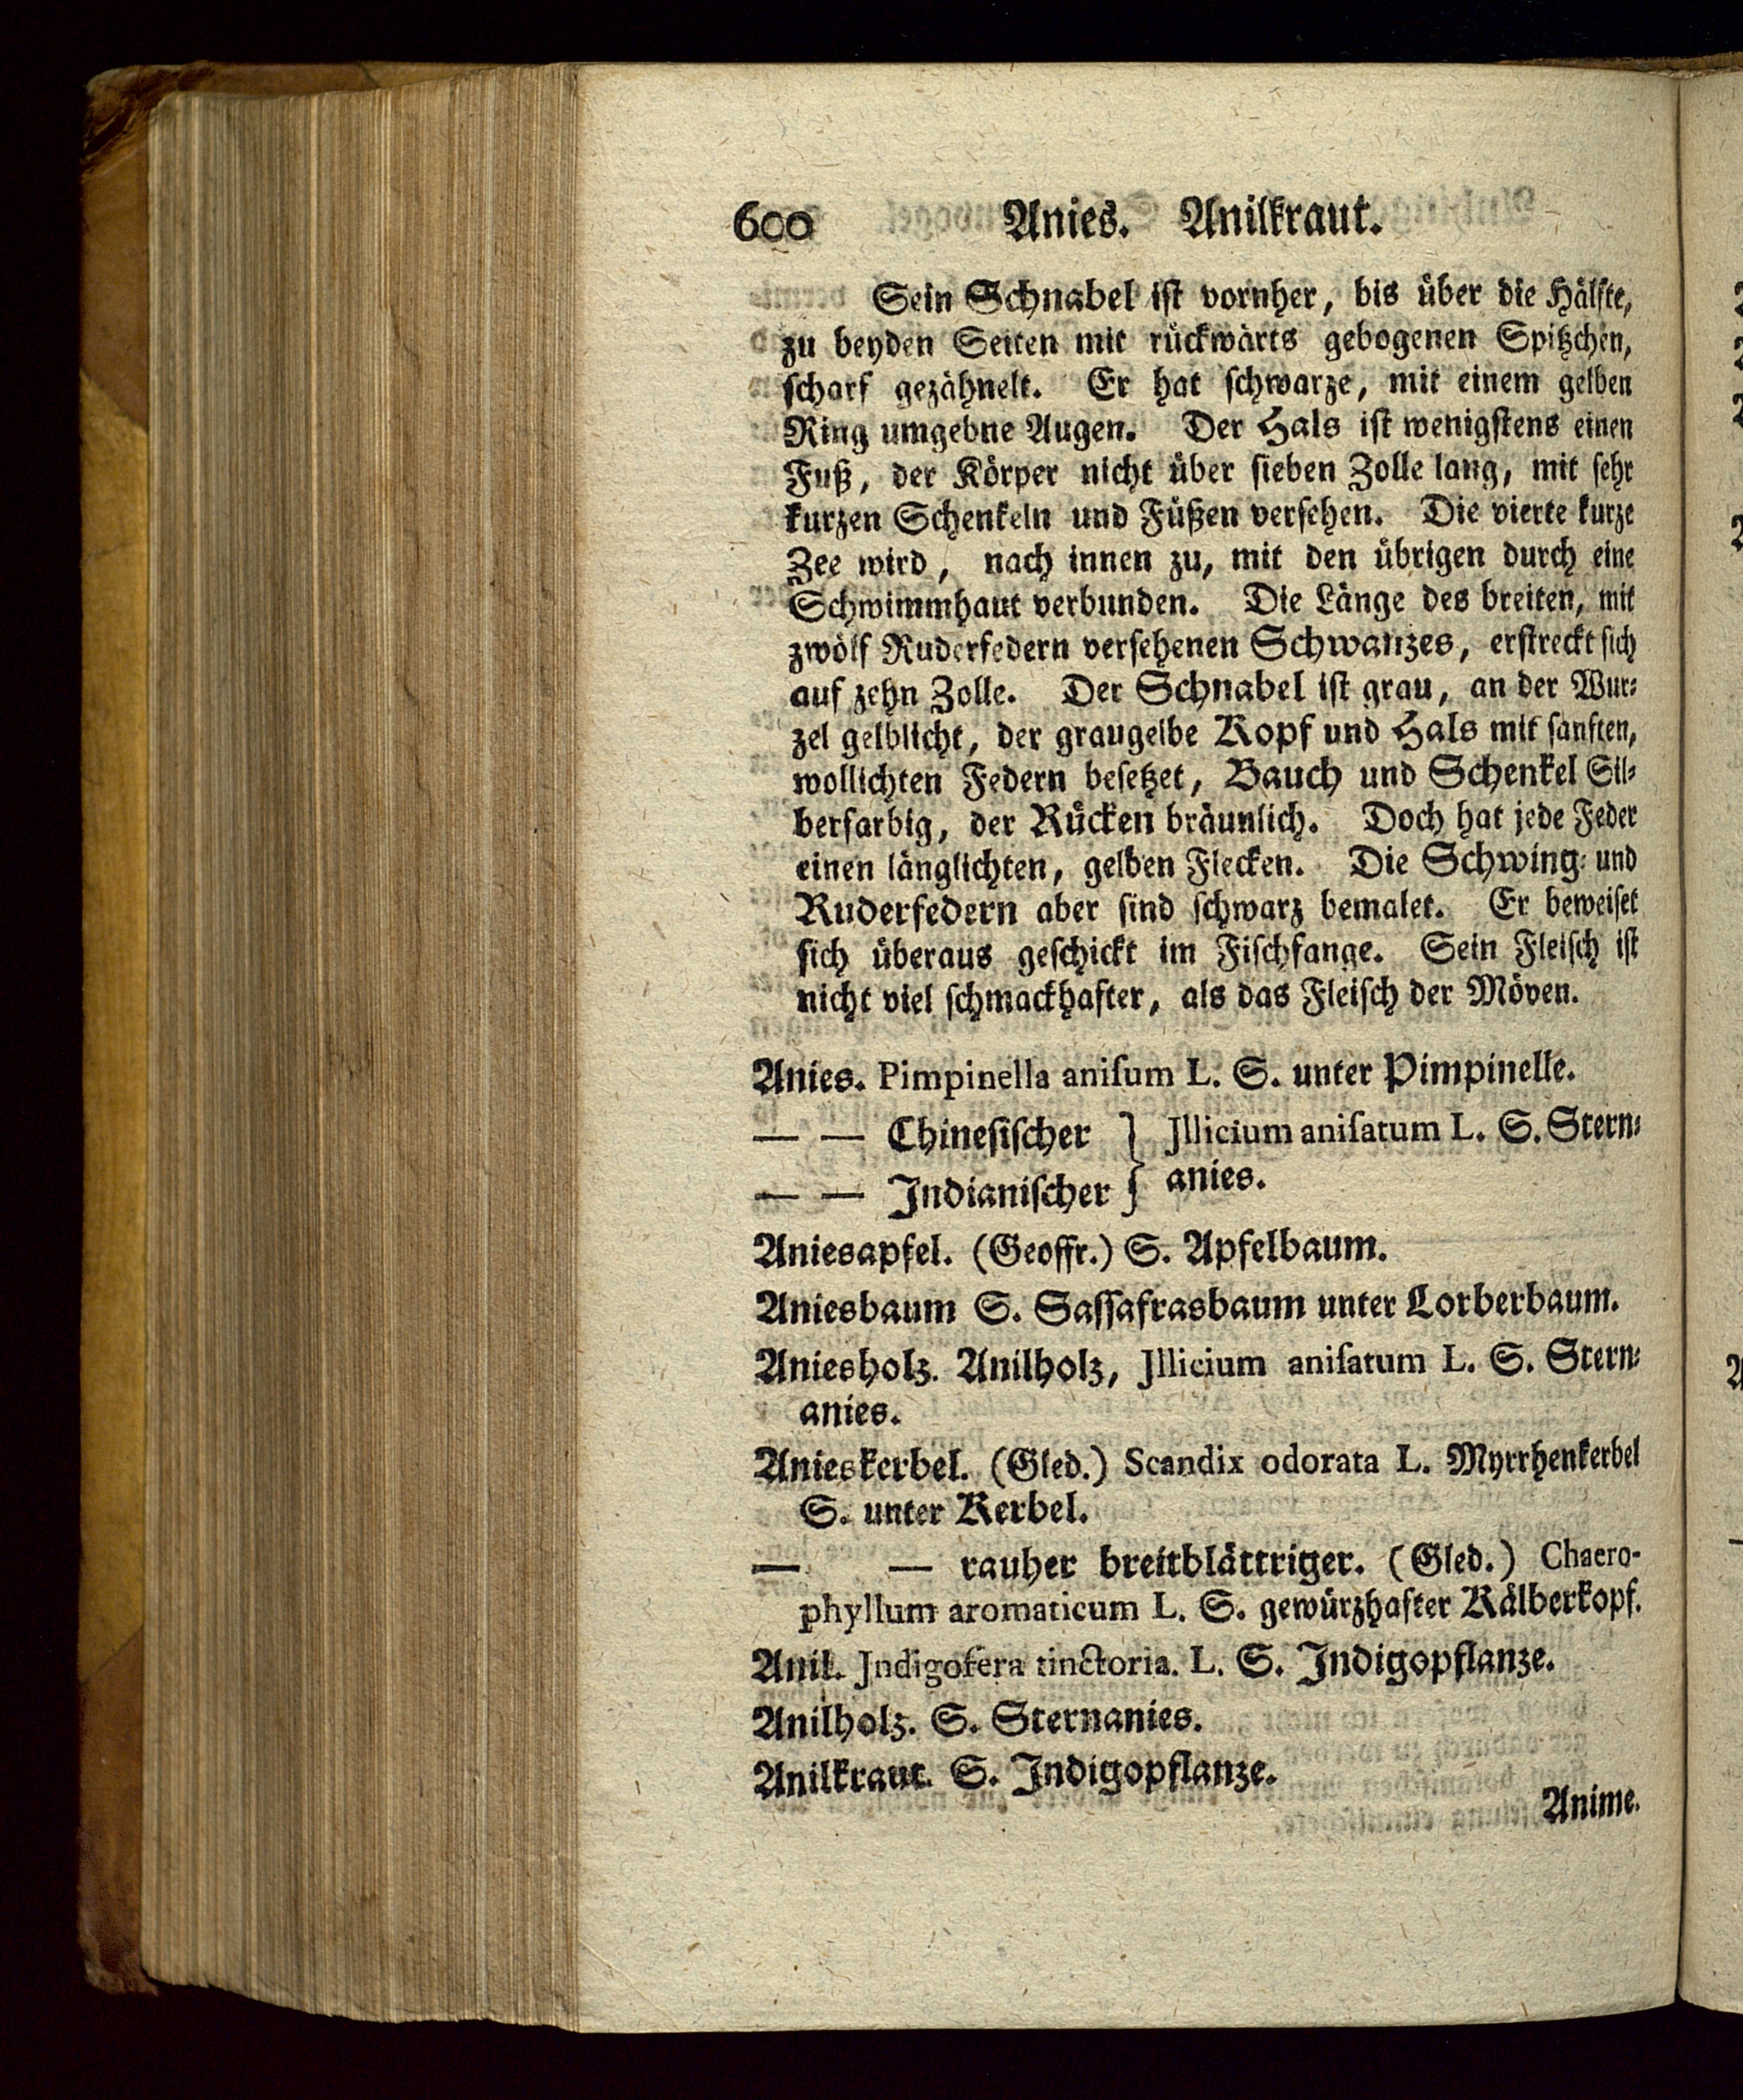 600 Anies. Anilkraut.
Sein Schnabel iſt vornher, bis über die Hälfte,
zu beyden Seiten mit rückwärts gebogenen Spitzchen,
ſcharf gezähnelt. Er hat ſchwarze, mit einem gelben
Ring umgebne Augen. Der Hals iſt wenigſtens einen
Fuß, der Körper nicht über ſieben Zolle lang, mit ſehr
kurzen Schenkeln und Füßen verſehen. Die vierte kurze
Zee wird, nach innen zu, mit den übrigen durch eine
Schwimmhaut verbunden. Die Länge des breiten, mit
zwölf Ruderfedern verſehenen Schwanzes, erſtreckt ſich
auf zehn Zolle. Der Schnabel iſt grau, an der Wur⸗
zel gelblicht, der graugelbe Kopf und Hals mit ſanften,
wollichten Federn beſetzet, Bauch und Schenkel Sil⸗
berfarbig, der Rücken bräunlich. Doch hat jede Feder
einen länglichten, gelben Flecken. Die Schwing⸗ und
Ruderfedern aber ſind ſchwarz bemalet. Er beweiſet
ſich überaus geſchickt im Fiſchfange. Sein Fleiſch iſt
nicht viel ſchmackhafter, als das Fleiſch der Möven.
Anies. Pimpinella aniſum L. S. unter Pimpinelle.
— — Chineſiſcher } Jllicium aniſatum L. S. Stern⸗
— — Indianiſcher } anies.
Aniesapfel. (Geoffr.) S. Apfelbaum.
Aniesbaum S. Saſſafrasbaum unter Lorberbaum.
Aniesholz. Anilholz, Jllicium aniſatum L. S. Stern⸗
anies.
Anieskerbel. (Gled.) Scandix odorata L. Myrrhenkerbel
S. unter Kerbel.
— — rauher breitblättriger. (Gled.) Chaero-
phyllum aromaticum L. S. gewürzhafter Kälberkopf.
Anil. Jndigofera tinctoria. L. S. Indigopflanze.
Anilholz. S. Sternanies.
Anilkraut. S. Indigopflanze.
Anime.